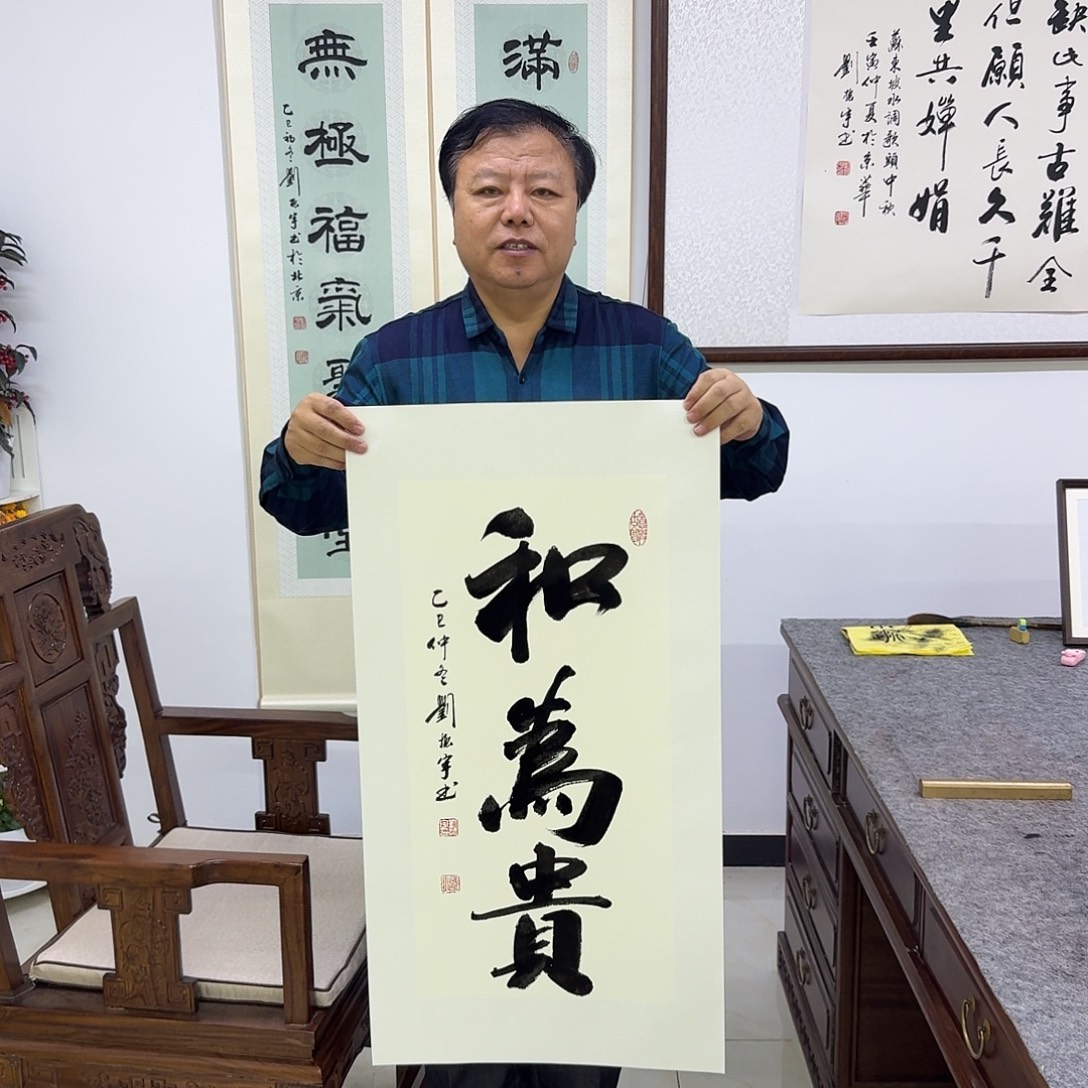 缺此事古難全
但願人長久千
里共嬋娟
蘇東坡水調歌頭中秋
壬寅仲夏於京華
劉振宇书
滿
無極福氣
乙巳初冬劉振宇书於北京
和為貴
乙巳仲冬劉振宇书